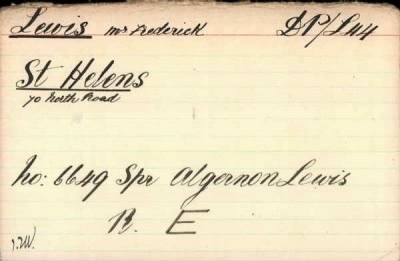 Lewis Mr Frederick DP/L44
St Helens
70 North Road
No: 6649 Spr Algernon Lewis
R. E